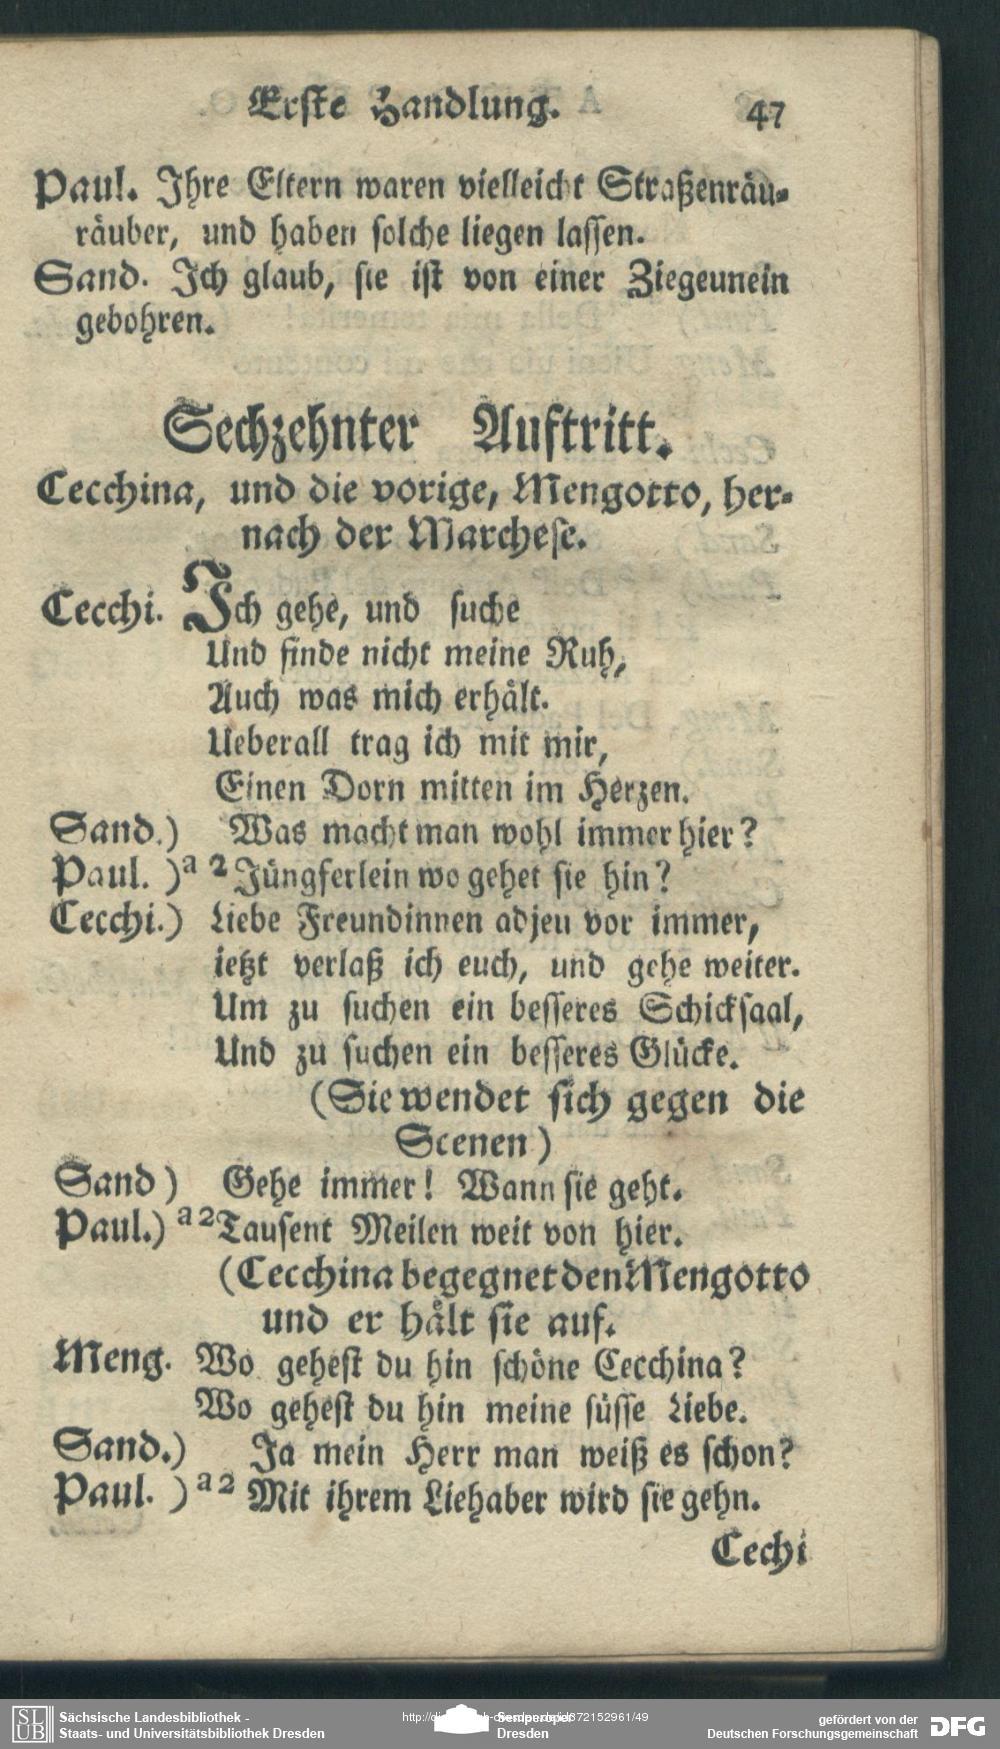 Erste Handlung. 47
Paul. Ihre Eltern waren vielleicht Straßenräu-
räuber, und haben solche liegen lassen.
Sand. Ich glaub, sie ist von einer Ziegeunein
gebohren.
Sechzehnter Auftritt.
Cecchina, und die vorige, Mengotto, her-
nach der Marchese.
Cecchi. Ich gehe, und suche
Und finde nicht meine Ruh,
Auch was mich erhält.
Ueberall trag ich mit mir,
Einen Dorn mitten im Herzen.
Sand.) Was macht man wohl immer hier?
Paul. )a 2 Jüngferlein wo gehet sie hin?
Cecchi.) Liebe Freundinnen adjeu vor immer,
ietzt verlaß ich euch, und gehe weiter.
Um zu suchen ein besseres Schicksaal,
Und zu suchen ein besseres Glücke.
(Sie wendet sich gegen die
Scenen)
Sand ) Gehe immer! Wann sie geht.
Paul.) a 2 Tausent Meilen weit von hier.
(Cecchina begegnet den Mengotto
und er hält sie auf.
Meng. Wo gehest du hin schöne Cecchina?
Wo gehest du hin meine süsse Liebe.
Sand.) Ja mein Herr man weiß es schon?
Paul. ) a 2 Mit ihrem Liehaber wird sie gehn.
Cechi
SLUB
Sächsische Landesbibliothek -
Staats- und Universitätsbibliothek Dresden
Semperoper
Dresden
gefördert von der
Deutschen Forschungsgemeinschaft
DFG